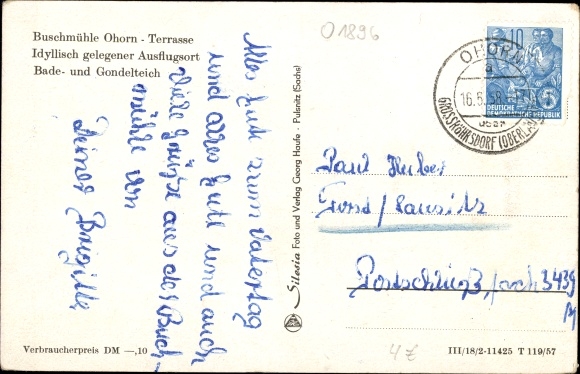 Buschmühle Ohorn - Terrasse
Idyllisch gelegener Ausflugsort
Bade- und Gondelteich
O1896
Alles Gute zum Vatertag
und alles Gute und auch
viele Grüße aus der Busch-
mühle von
Deiner Brigitte
Silesia Foto und Verlag Georg Haufe · Pulsnitz (Sachs)
10
5
DEUTSCHE
DEMOKRATISCHE REPUBLIK
OHORN
a
16.5.58
GROSSRÖHRSDORF (OBERLAUS
Paul Huber
Forst / Lausitz
Postschließfach 3439
Verbraucherpreis DM —,10
III/18/2-11425 T 119/57